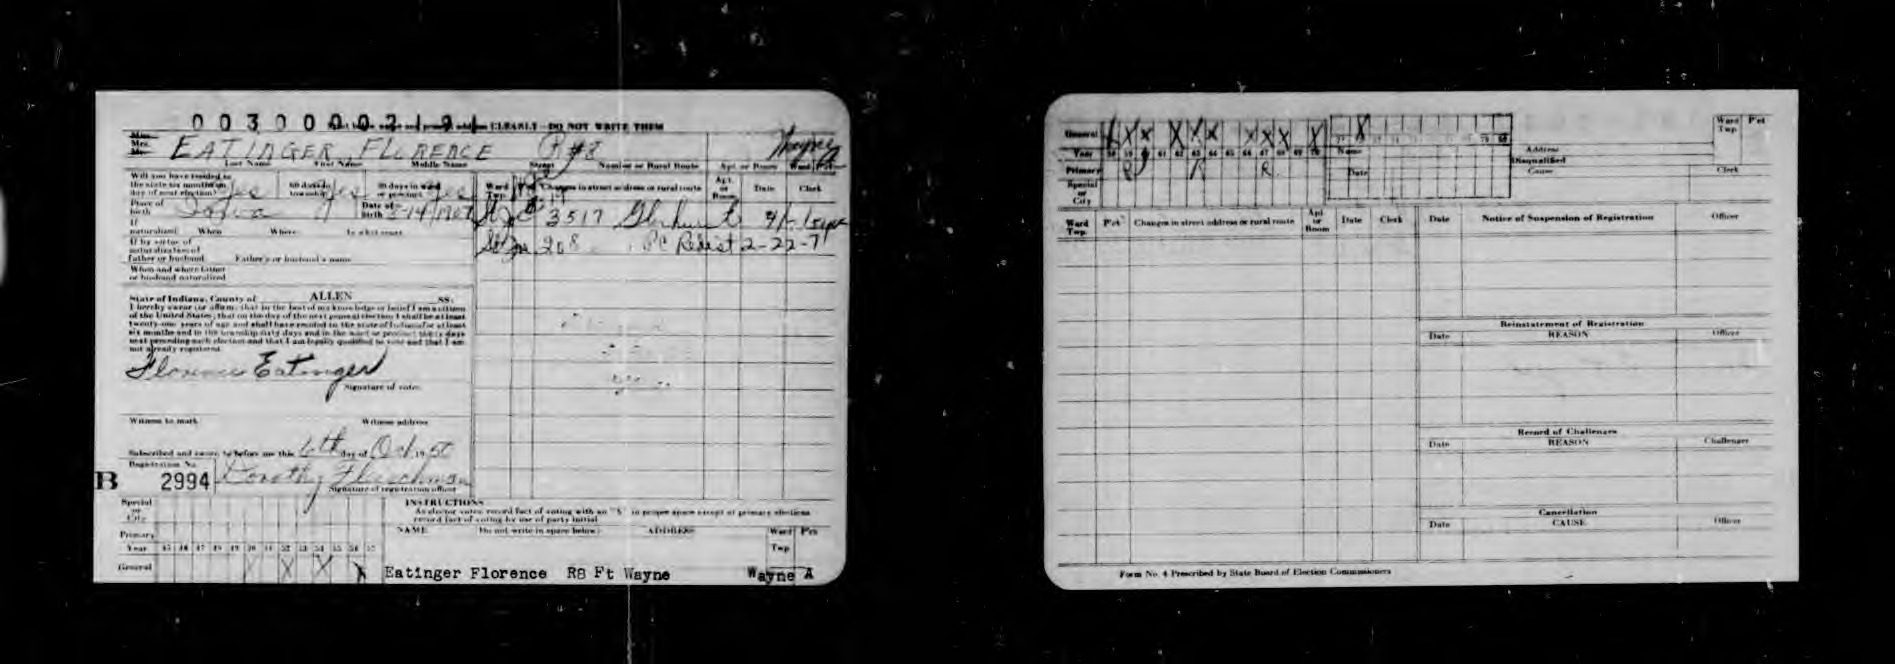 0030000219
CLEARLY - DO NOT WRITE THEM
Mrs.
EATINGER FLORENCE R#8 Wayne A
Last Name First Name Middle Name Street Number or Rural Route Apt. or Room Ward Pct
Will you have resided in
the state six months on
day of next election? Yes 60 days in township Yes 30 days in ward or precinct Yes
Ward Twp. Changes in street address or rural route Apt. or Room Date Clerk
Place of birth Iowa Date of birth 2-14
3517
If naturalized When Where In what court
208 2-22-71
If by virtue of
naturalization of
father or husband Father's or husband's name
When and where father
or husband naturalized
State of Indiana, County of ALLEN SS:
I hereby swear (or affirm) that to the best of my knowledge or belief I am a citizen
of the United States; that on the day of the next general election I shall be at least
twenty-one years of age and shall have resided in the state of Indiana for at least
six months and in the township sixty days and in the ward or precinct thirty days
next preceding such election and that I am legally qualified to vote and that I am
not already registered.
Florence Eatinger
Signature of voter
Witness to mark Witness address
Subscribed and sworn to before me this 6th day of Oct 1950
Registration No.
B 2994 Dorothy
Signature of registration officer
Special or City
Primary
Year 45 46 47 48 49 50 51 52 53 54 55 56 57
General X X X X
INSTRUCTIONS
As elector votes record fact of voting with an "X" in proper space except at primary elections
record fact of voting by use of party initial
NAME (Do not write in space below) ADDRESS Ward Twp Pct
Eatinger Florence R8 Ft Wayne Wayne A
General X X X X X X X X X X
Year 58 59 60 61 62 63 64 65 66 67 68 69 70
Primary R R R
Special or City
Name
Date
Address
Disqualified
Cause
Ward Twp Pct
Clerk
Ward Twp. Pct Changes in street address or rural route Apt or Room Date Clerk
Date Notice of Suspension of Registration Officer
Reinstatement of Registration
Date REASON Officer
Record of Challenges
Date REASON Challenger
Cancellation
Date CAUSE Officer
Form No. 4 Prescribed by State Board of Election Commissioners